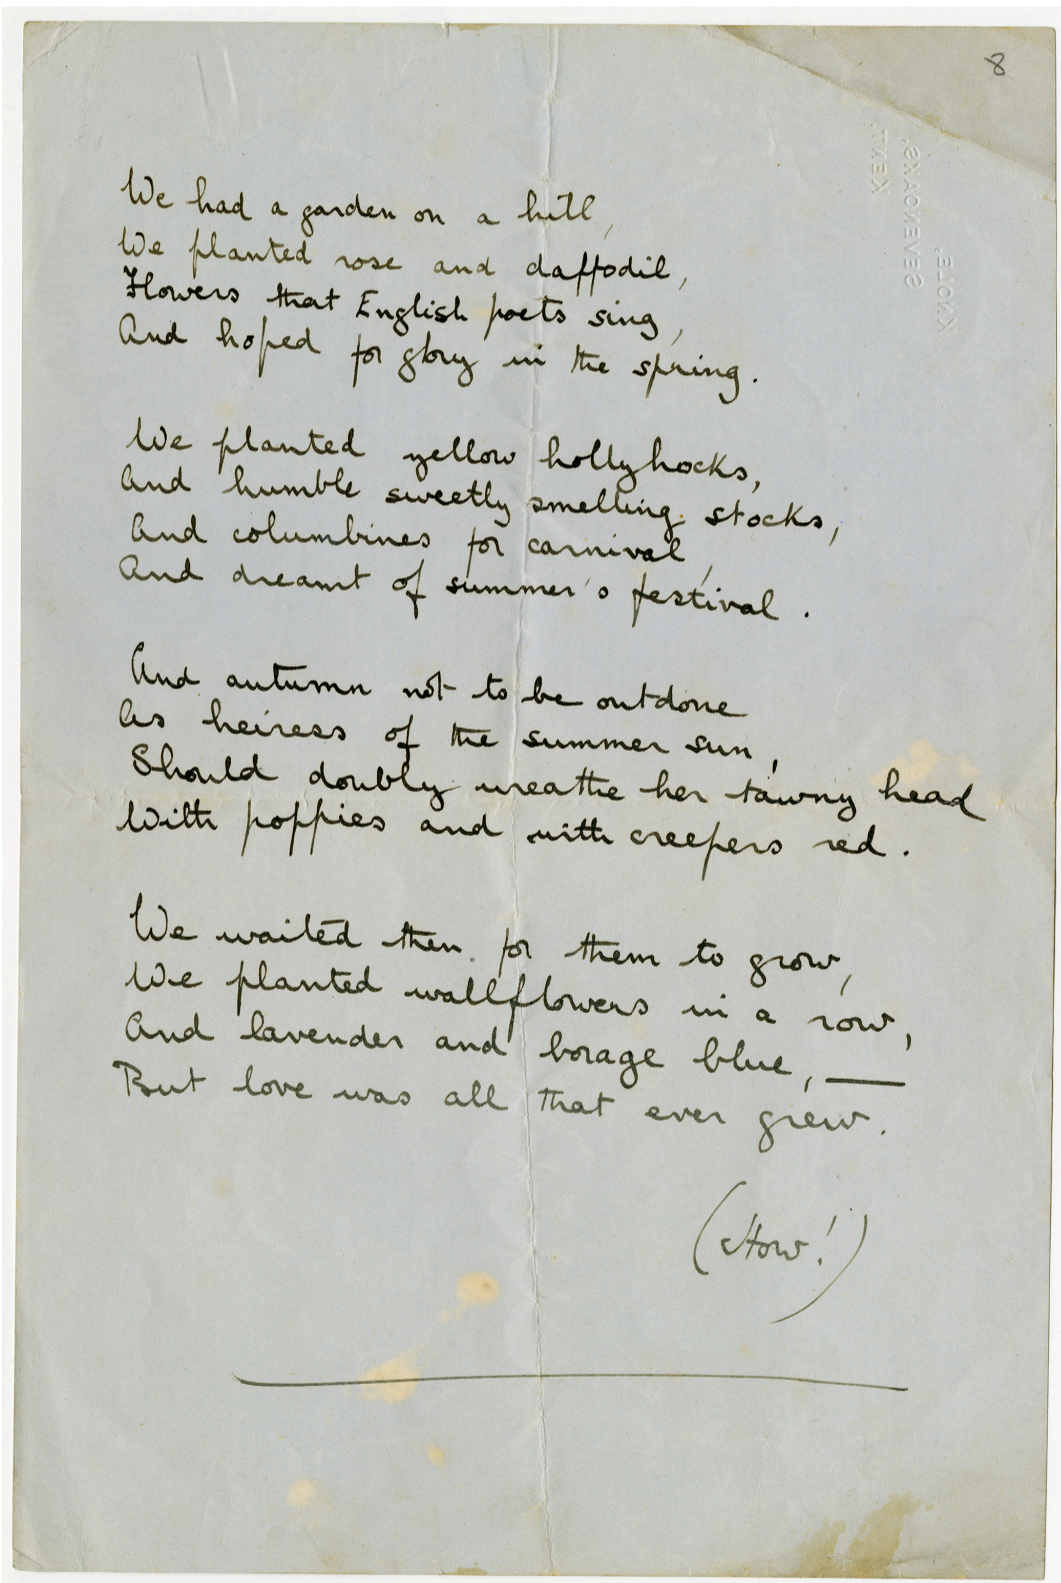 8
KENT.
SEVENOAKS,
KNOLE,
We had a garden on a hill,
We planted rose and daffodil,
Flowers that English poets sing,
And hoped for glory in the spring.
We planted yellow hollyhocks,
And humble sweetly smelling stocks,
And columbines for carnival,
And dreamt of summer's festival.
And autumn not to be outdone
As heiress of the summer sun,
Should doubly wreathe her tawny head
With poppies and with creepers red.
We waited then for them to grow,
We planted wallflowers in a row,
And lavender and borage blue, —
But love was all that ever grew.
(How!)